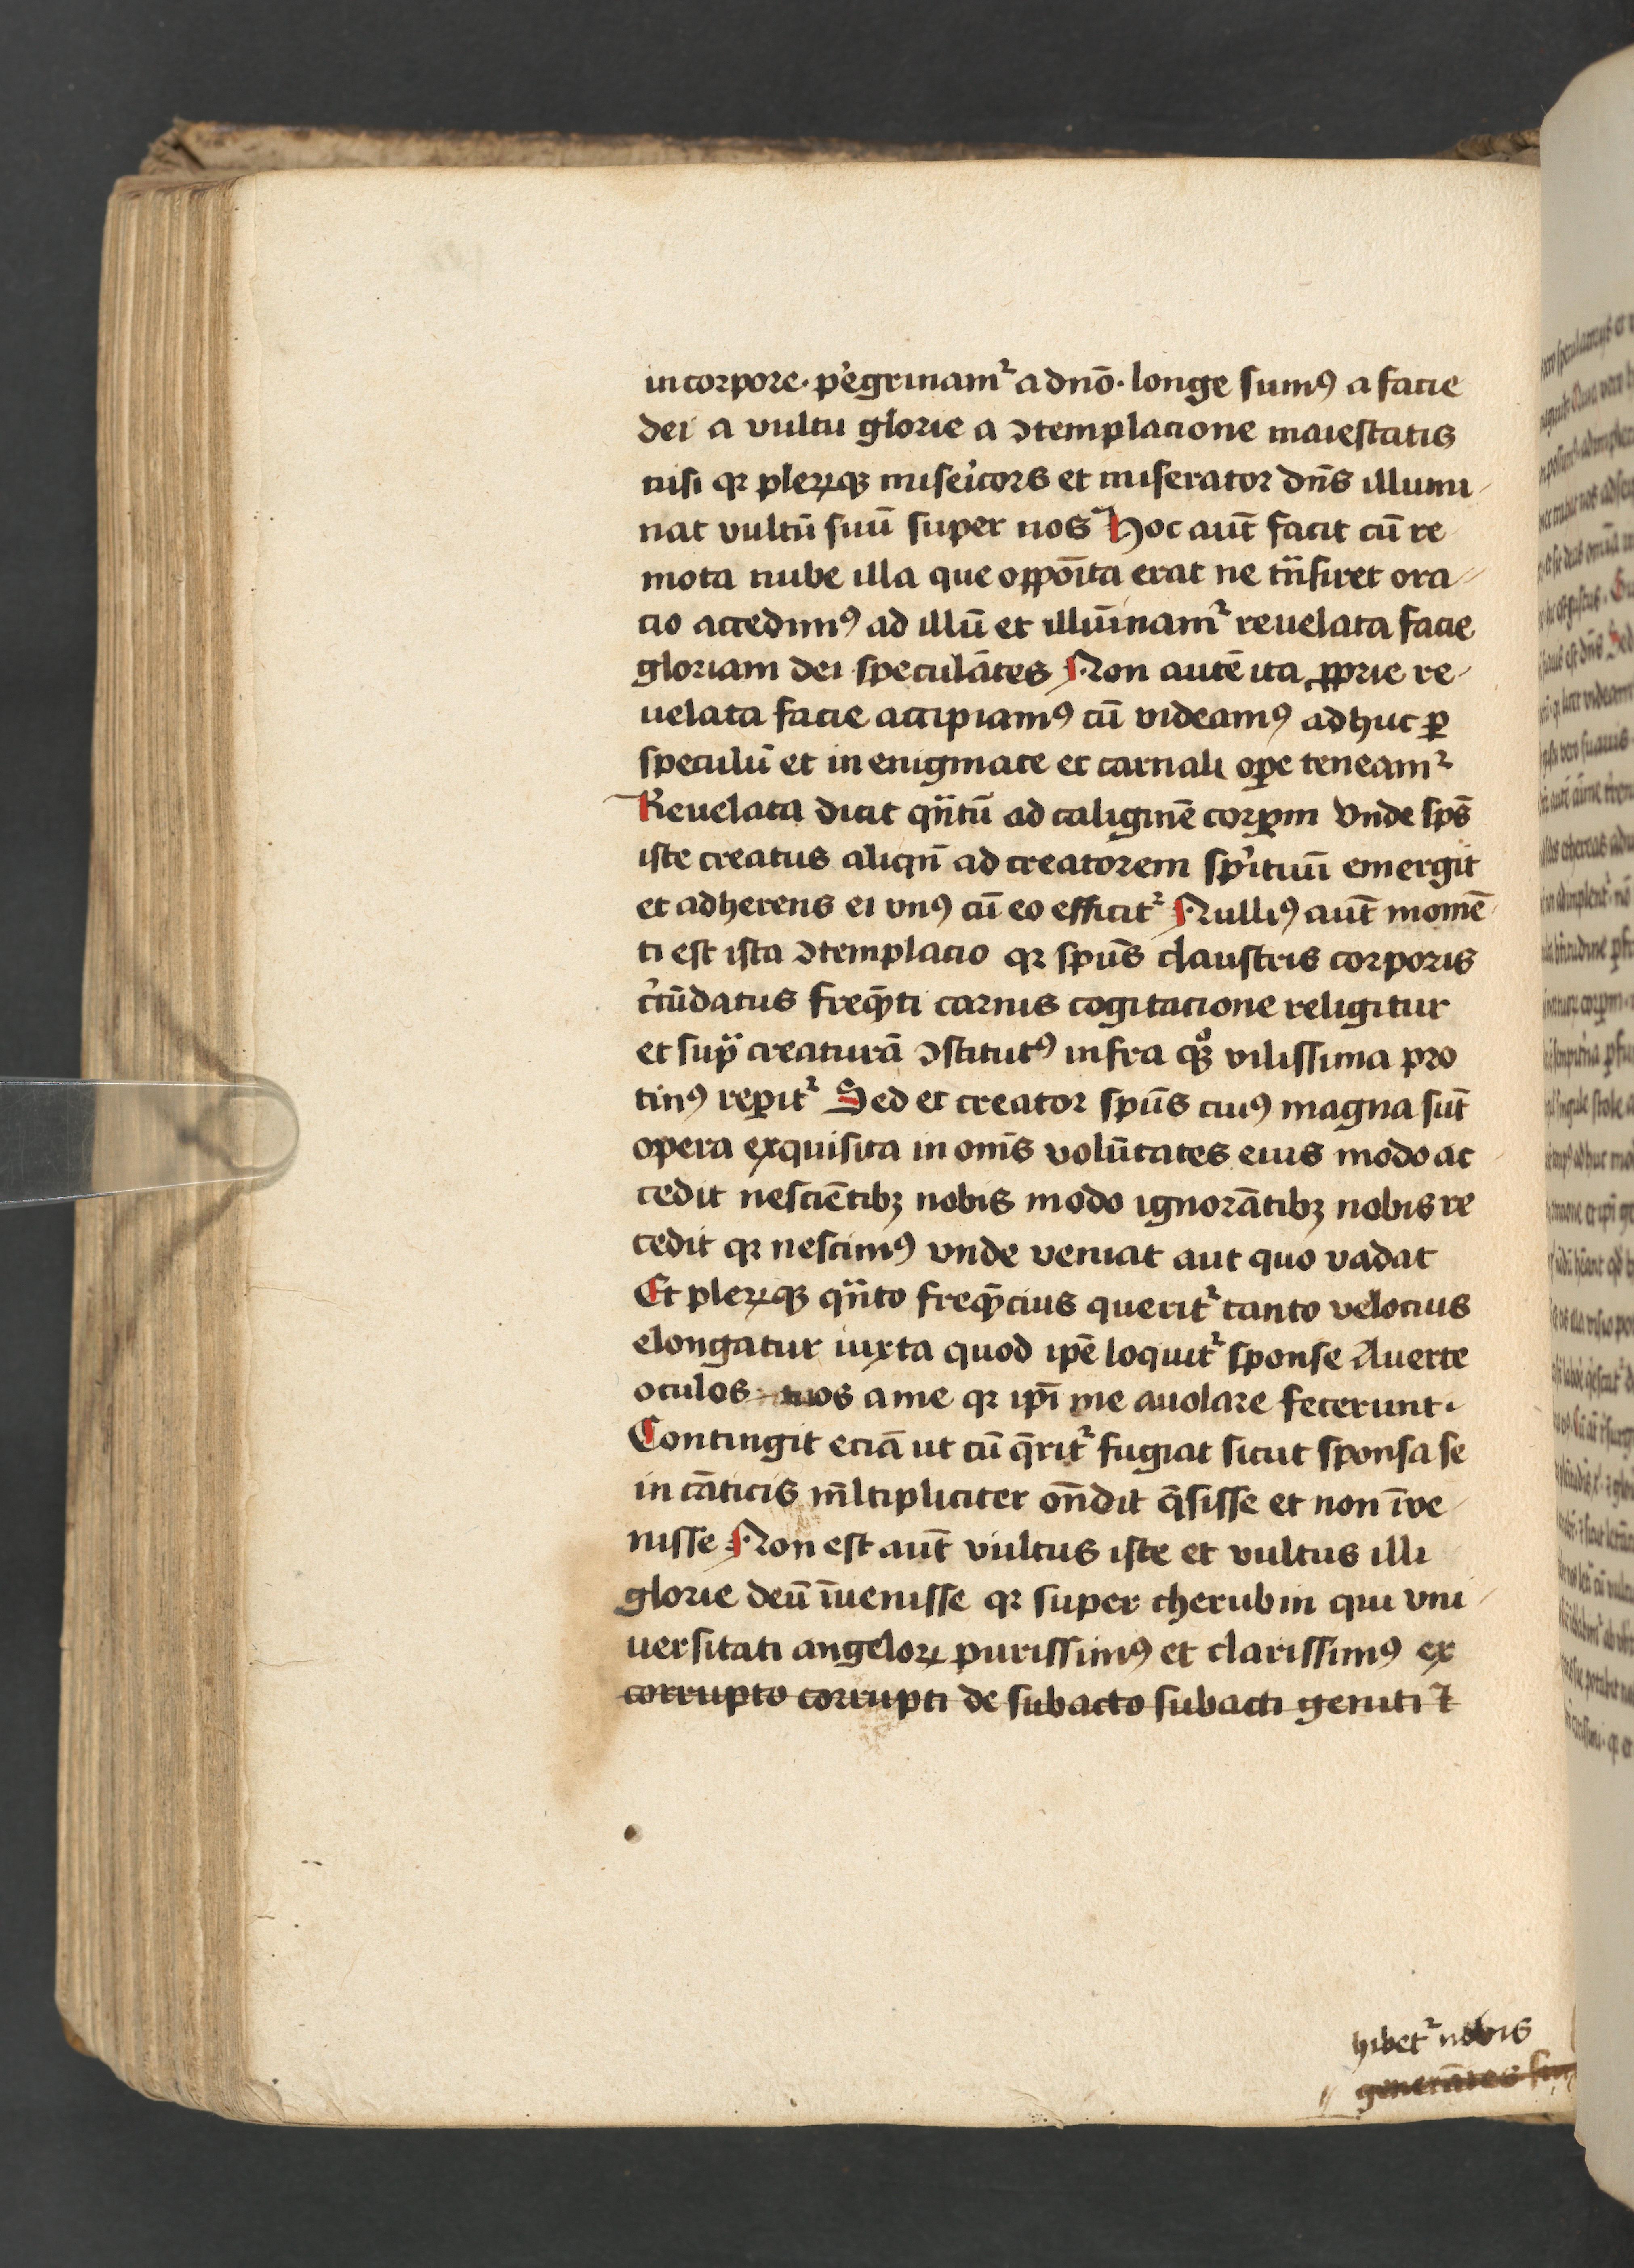 in corpore· p᷑egrinam᷑ a dn̄o· longe sumꝰ a facie
dei a vultu glorie a ꝯtemplacione maiestatis
nisi qꝛ pleꝝqꝫ misẽicors et miserator dn̄s illumi
nat vultū suū super nos Hoc aut̄ facit cū re
mota nube illa que oppoīta erat ne tn̈siret ora
cio accedimꝰ ad illū et illuīnam᷑ reuelata facie
gloriam dei speculātes Non autē ita ꝓprie re
uelata facie accipiamꝰ cū videamꝰ adhuc ꝑ
speculū et in enigmate et carnali oꝑe teneam᷑
Reuelata dicit qn̈tū ad caliginē corꝑm Vnde sp̄s
iste creatus aliqn̄ ad creatorem sp̄ituū emergit
et adherens ei vnꝰ cū eo efficit᷑ Nulliꝰ aut̄ momē
ti est ista ꝯtemplacio qꝛ spūs claustris corporis
c̓cūdatus freq̄nti carnis cogitacione religitur
et sup̈ creaturā ꝯstitutꝰ infra qꝫͦ vilissima pro
tinꝰ reꝑit᷑ Sed et creator spūs cuiꝰ magna sūt
opera exquisita in om̄s volūtates eius modo ac
cedit nesciētibꝫ nobis modo ignorātibꝫ nobis re
cedit qꝛ nescimꝰ vnde veniat aut quo vadat
Et pleꝝqꝫ qn̈to freq̄ncius querit᷑ tanto velocius
elongatur iuxta quod ip̄e loquit᷑ sponse Auerte
oculos tuos a me qꝛ ip̄i me auolare fecerunt·
Contingit eciā ut cū q̄rit᷑ fugiat sicut sponsa se
in cāticis m̄ltipliciter on̄dit q̄sisse et non īve
nisse Non est aut̄ vultus iste et vultus illi
glorie deū īuenisse qꝛ super cherubin qui vni
uersitati angeloꝝ purissimꝰ et clarissimꝰ ex
corrupto corrupti de subacto subacti geniti ⁊
hibet᷑ nobis
generātes